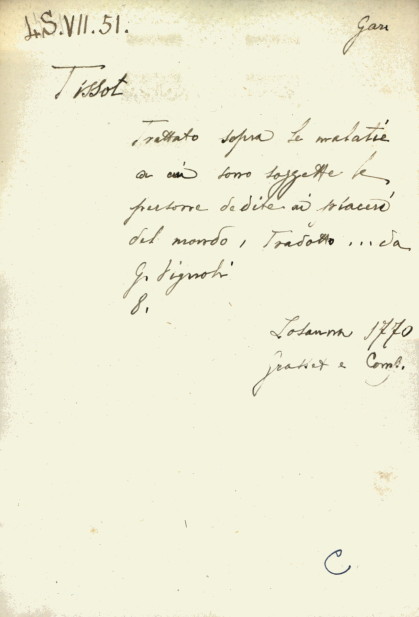 4.S.VII.51.
Gan
Tissot
Trattato sopra le malatie
a cui sono soggette le
persone dedite ai piaceri
del mondo, Tradotto ... da
G. Vignoli
8.
Losanna 1770
Grasset e Comp.
C